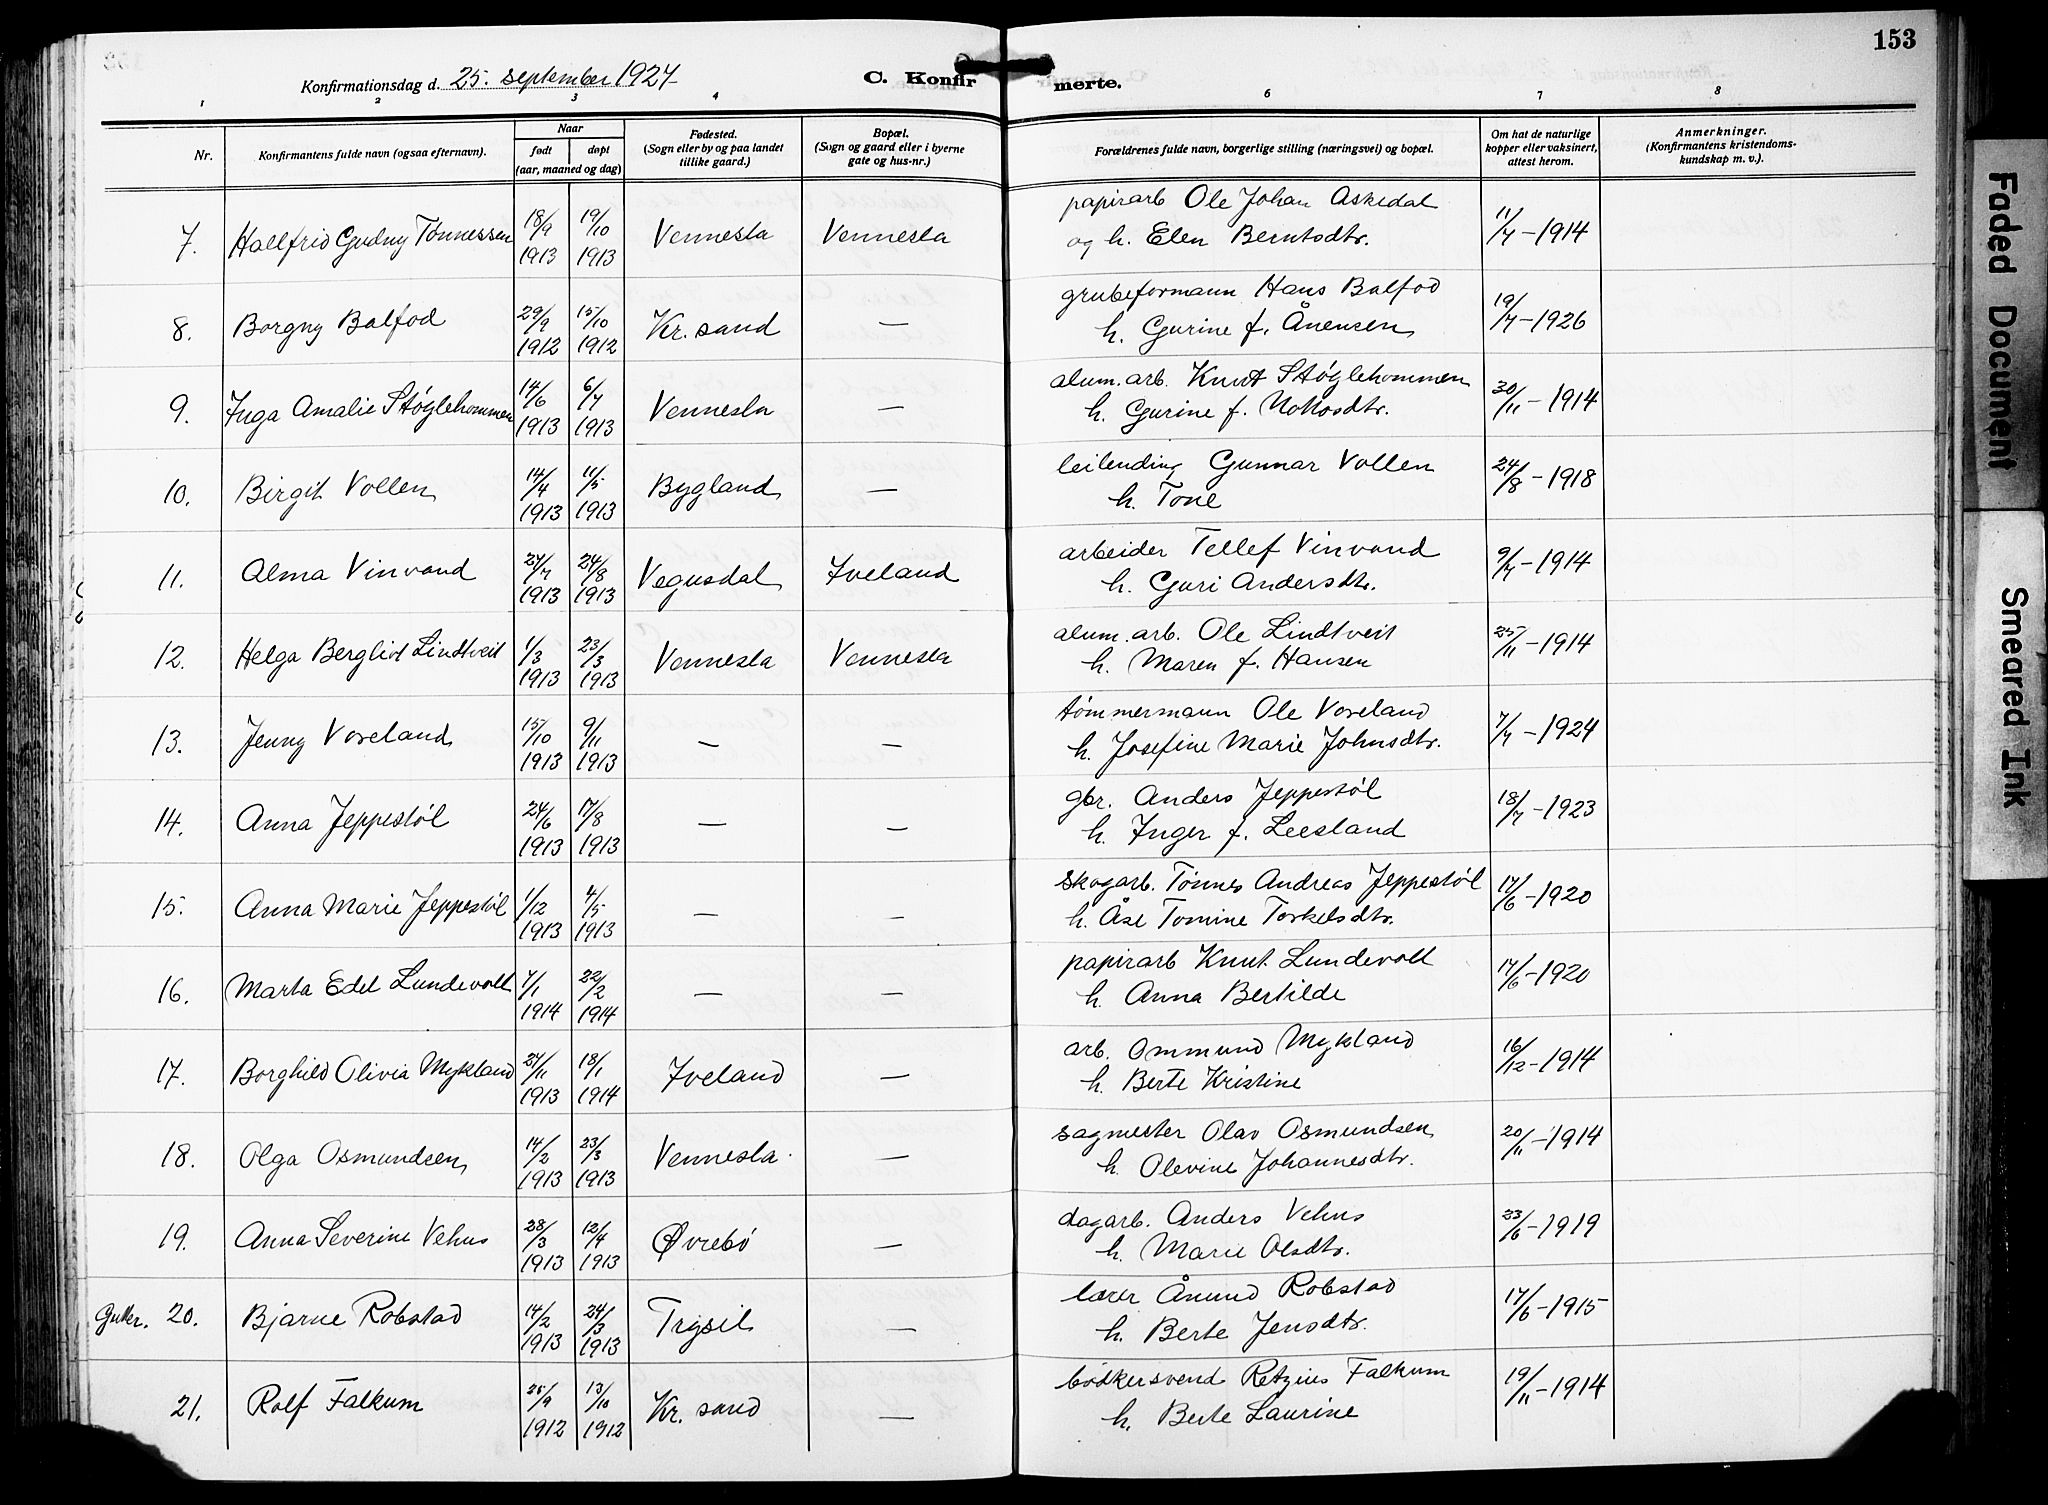 153
Konfirmationsdag d. 25. september 1927
C. Konfirmerte.
1 2 3 4 5 6 7 8
Nr.
Konfirmantens fulde navn (ogsaa efternavn).
Naar
født
døpt
(aar, maaned og dag)
Fødested.
(Sogn eller by og paa landet
tillike gaard.)
Bopæl.
(Sogn og gaard eller i byerne
gate og hus-nr.)
Forældrenes fulde navn, borgerlige stilling (næringsvei) og bopæl.
Om hat de naturlige
kopper eller vaksinert,
attest herom.
Anmerkninger.
(Konfirmantens kristendoms-
kundskap m. v.).
7. Hallfrid Gudny Tønnessen 18/9 1913 19/10 1913 Vennesla Vennesla papirarb Ole Johan Askedal
og h. Elen Berntsdtr. 11/7 - 1914
8. Borgny Balfod 29/9 1912 15/10 1912 Kr. sand — grubeformann Hans Balfod
h. Gurine f. Ånensen 19/7 - 1926
9. Inga Amalie Støglehommen 14/6 1913 6/7 1913 Vennesla — alum. arb. Knut Støglehommen
h. Gurine f. 30/11 - 1914
10. Birgit Vollen 14/4 1913 11/5 1913 Bygland — leilending Gunnar Vollen
h. Tone 24/8 - 1918
11. Alma Vinvand 27/7 1913 24/8 1913 Vegusdal Iveland arbeider Tellef Vinvand
h. Guri Andersdtr. 9/7 - 1914
12. Helga Bergliot Lindtveit 1/3 1913 23/3 1913 Vennesla Vennesla alum. arb. Ole Lindtveit
h. Maren f. Hansen 25/11 - 1914
13. Jenny Voreland 15/10 1913 9/11 1913 — — tømmermann Ole Voreland
h. Josefine Marie Johnsdtr. 7/7 - 1924
14. Anna Jeppestøl 24/6 1913 17/8 1913 — — gbr. Anders Jeppestøl
h. Inger f. Leesland 18/7 - 1923
15. Anna Marie Jeppestøl 1/12 1913 4/5 1913 — — skogarb. Tønnes Andreas Jeppestøl
h. Åse Tomine Torkelsdtr. 17/6 - 1920
16. Marta Edel Lundevoll 7/1 1914 22/2 1914 — — papirarb Knut Lundevoll
h. Anna Bertilde 17/6 - 1920
17. Borghild Olivia Mykland 27/11 1913 18/1 1914 Iveland — arb. Ommund Mykland
h. Berte Kristine 16/12 - 1914
18. Olga Osmundsen 14/2 1913 23/3 1913 Vennesla — sagmester Olav Osmundsen
h. Olevine Johannesdtr. 20/11 - 1914
19. Anna Severine Vehus 28/3 1913 12/4 1913 Øvrebø — dagarb. Anders Vehus
h. Marie Olsdtr. 23/6 - 1919
Gutter. 20. Bjarne Robstad 14/2 1913 24/3 1913 Trysil — lærer Ånund Robstad
h. Berte Jensdtr. 17/6 - 1915
21. Rolf Falkum 25/9 1912 13/10 1912 Kr. sand — bødkersvend Retzius Falkum
h. Berte Laurine 19/11 - 1914
Faded Document
Smeared Ink